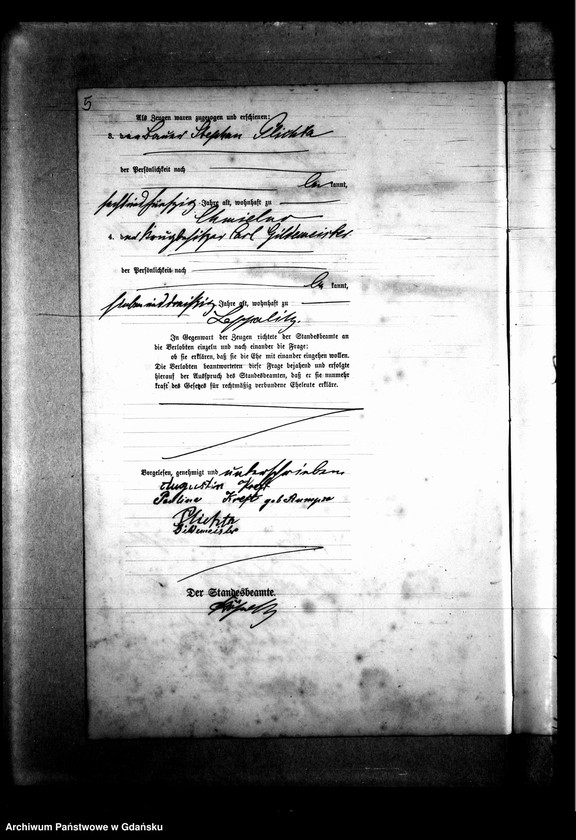 5
Als Zeugen waren zugezogen und erschienen:
3. der Bauer Stephan Plichta
der Persönlichkeit nach
be kannt,
sechsundfünfzig Jahre alt, wohnhaft zu
Chmielno
4. der Krugbesitzer Carl Gildemeister
der Persönlichkeit nach
be kannt,
siebenunddreißig Jahre alt, wohnhaft zu
In Gegenwart der Zeugen richtete der Standesbeamte an
die Verlobten einzeln und nach einander die Frage:
ob sie erklären, daß sie die Ehe mit einander eingehen wollen.
Die Verlobten beantworteten diese Frage bejahend und erfolgte
hierauf der Ausspruch des Standesbeamten, daß er sie nunmehr
kraft des Gesetzes für rechtmäßig verbundene Eheleute erkläre.
Vorgelesen, genehmigt und unterschrieben
Augustin Kreft
Pauline Kreft geb
Plichta
Gildemeister
Der Standesbeamte.
Archiwum Państwowe w Gdańsku